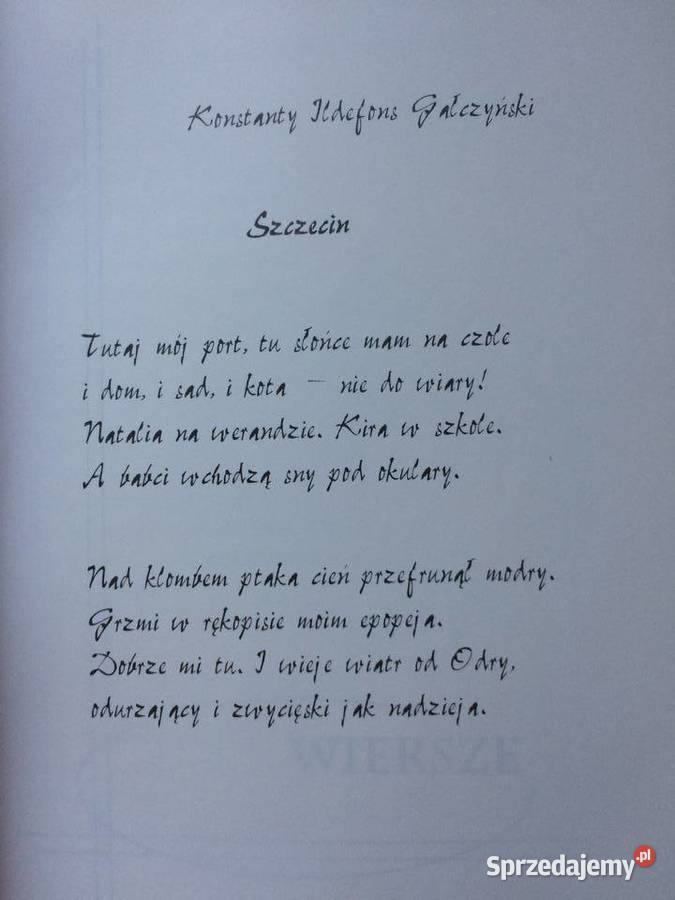 Konstanty Ildefons Gałczyński
Szczecin
Tutaj mój port, tu słońce mam na czole
i dom, i sad, i kota – nie do wiary!
Natalia na werandzie. Kira w szkole.
A babci wchodzą sny pod okulary.
Nad klombem ptaka cień przefrunął modry.
Grzmi w rękopisie moim epopeja.
Dobrze mi tu. I wieje wiatr od Odry,
odurzający i zwycięski jak nadzieja.
WIERSZE
Sprzedajemy.pl